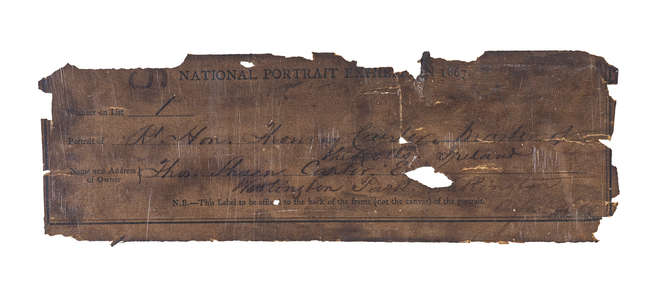 NATIONAL PORTRAIT EXHIBITION 1867
Number on List 1
Portrait of Rt. Hon. Thomas Carter, Master of
the Rolls, Ireland
Name and Address of Owner } Thos. Shaen Carter
Watlington Park
N.B.—This Label to be affixed to the back of the frame (not the canvas) of the portrait.